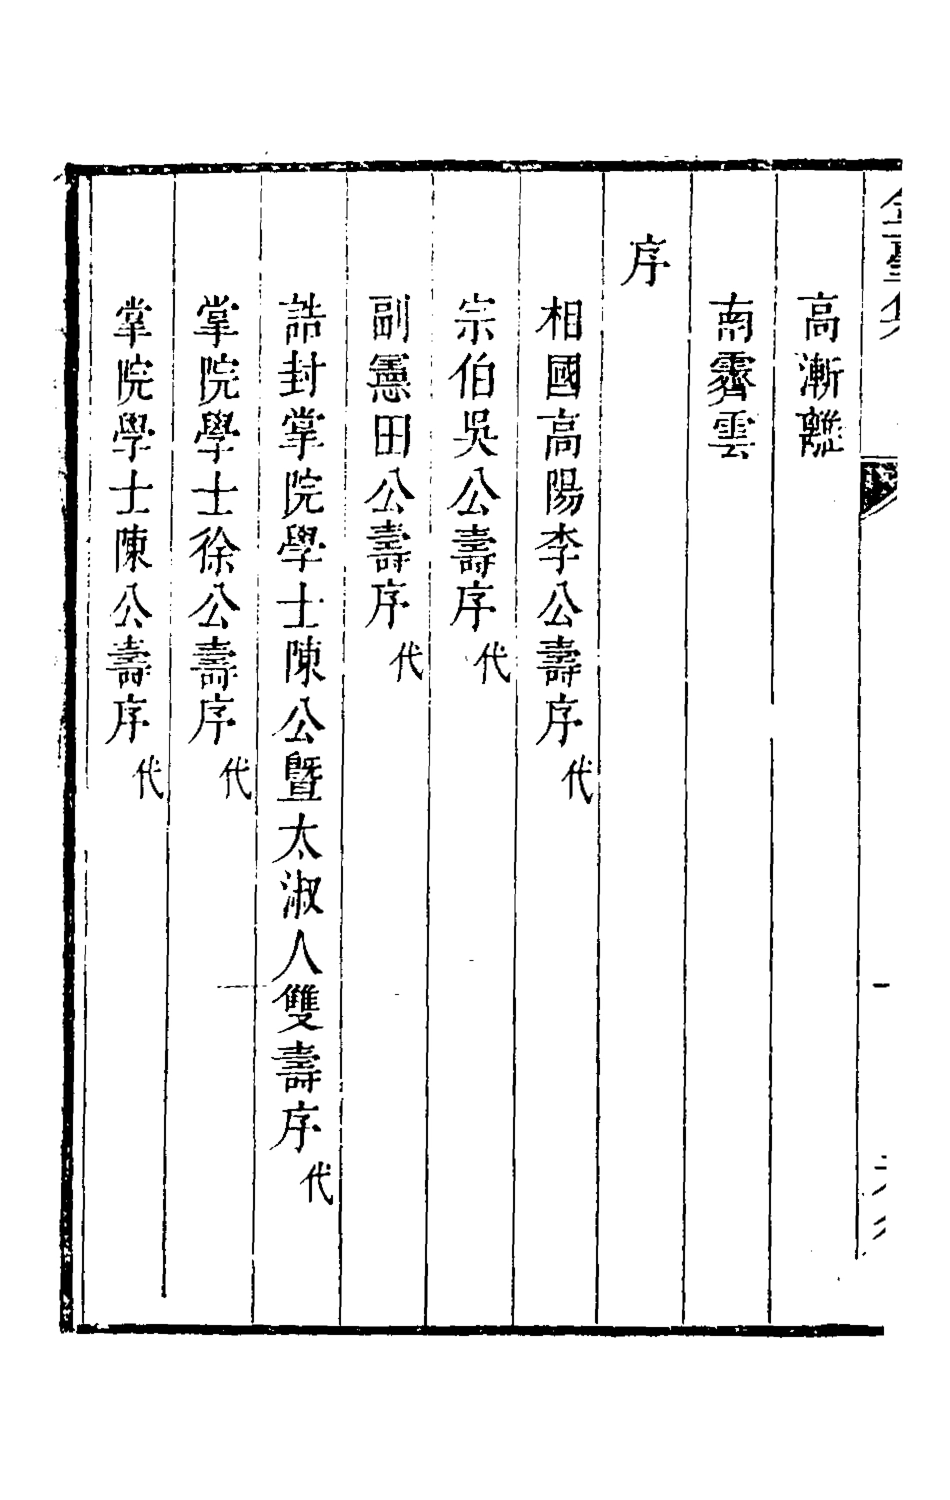 高漸離
南霽雲
序
相國高陽李公壽序代
宗伯吳公壽序代
副憲田公壽序代
誥封掌院學士陳公暨太淑人雙壽序代
掌院學士徐公壽序代
掌院學士陳公壽序代